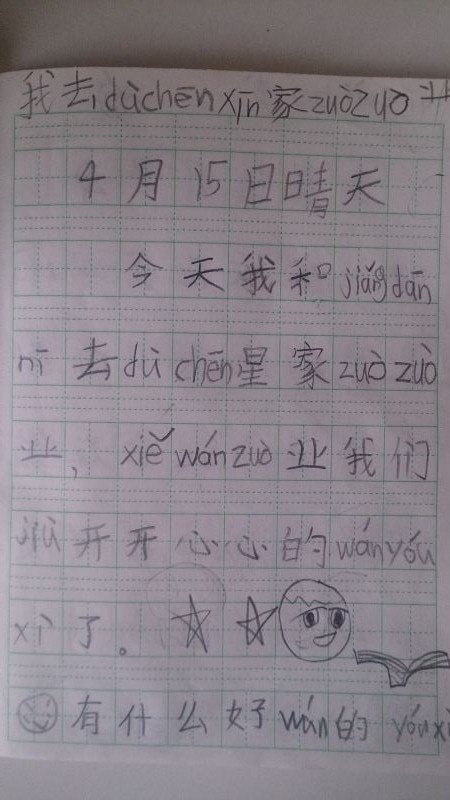 我去dùchēnxīn家zuòzuò业
4月15日晴天
今天我和jiǎngdān
nī去dùchēn星家zuòzuò
业，xiěwánzuò业我们
jiù开开心心的wányóu
xì了。
有什么好wán的yóuxì